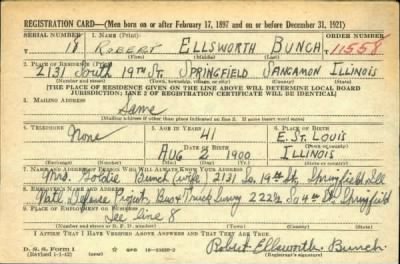 REGISTRATION CARD—(Men born on or after February 17, 1897 and on or before December 31, 1921)
SERIAL NUMBER 1. NAME (Print) ORDER NUMBER
18 ROBERT ELLSWORTH BUNCH 11558
(First) (Middle) (Last)
2. PLACE OF RESIDENCE (Print)
2131 South 19TH ST. SPRINGFIELD SANGAMON ILLINOIS
(Number and street) (Town, township, village, or city) (County) (State)
[THE PLACE OF RESIDENCE GIVEN ON THE LINE ABOVE WILL DETERMINE LOCAL BOARD
JURISDICTION; LINE 2 OF REGISTRATION CERTIFICATE WILL BE IDENTICAL]
3. MAILING ADDRESS
Same
[Mailing address if other than place indicated on line 2. If same insert word same]
4. TELEPHONE 5. AGE IN YEARS 6. PLACE OF BIRTH
None 41 E. ST. LOUIS
DATE OF BIRTH (Town or county)
AUG 2 1900 ILLINOIS
(Exchange) (Number) (Mo.) (Day) (Yr.) (State or country)
7. NAME AND ADDRESS OF PERSON WHO WILL ALWAYS KNOW YOUR ADDRESS
Mrs. Goldie Bunch (wife) 2131 So. 19th St., Springfield Ill
8. EMPLOYER'S NAME AND ADDRESS
Natl Defense Project, Bus & Truck Survey 222½ So 4th St. Springfield
9. PLACE OF EMPLOYMENT OR BUSINESS
See line 8
(Number and street or R. F. D. number) (Town) (County) (State)
I AFFIRM THAT I HAVE VERIFIED ABOVE ANSWERS AND THAT THEY ARE TRUE.
D. S. S. Form 1
(Revised 1-1-42) GPO Robert Ellsworth Bunch
(Registrant's signature)